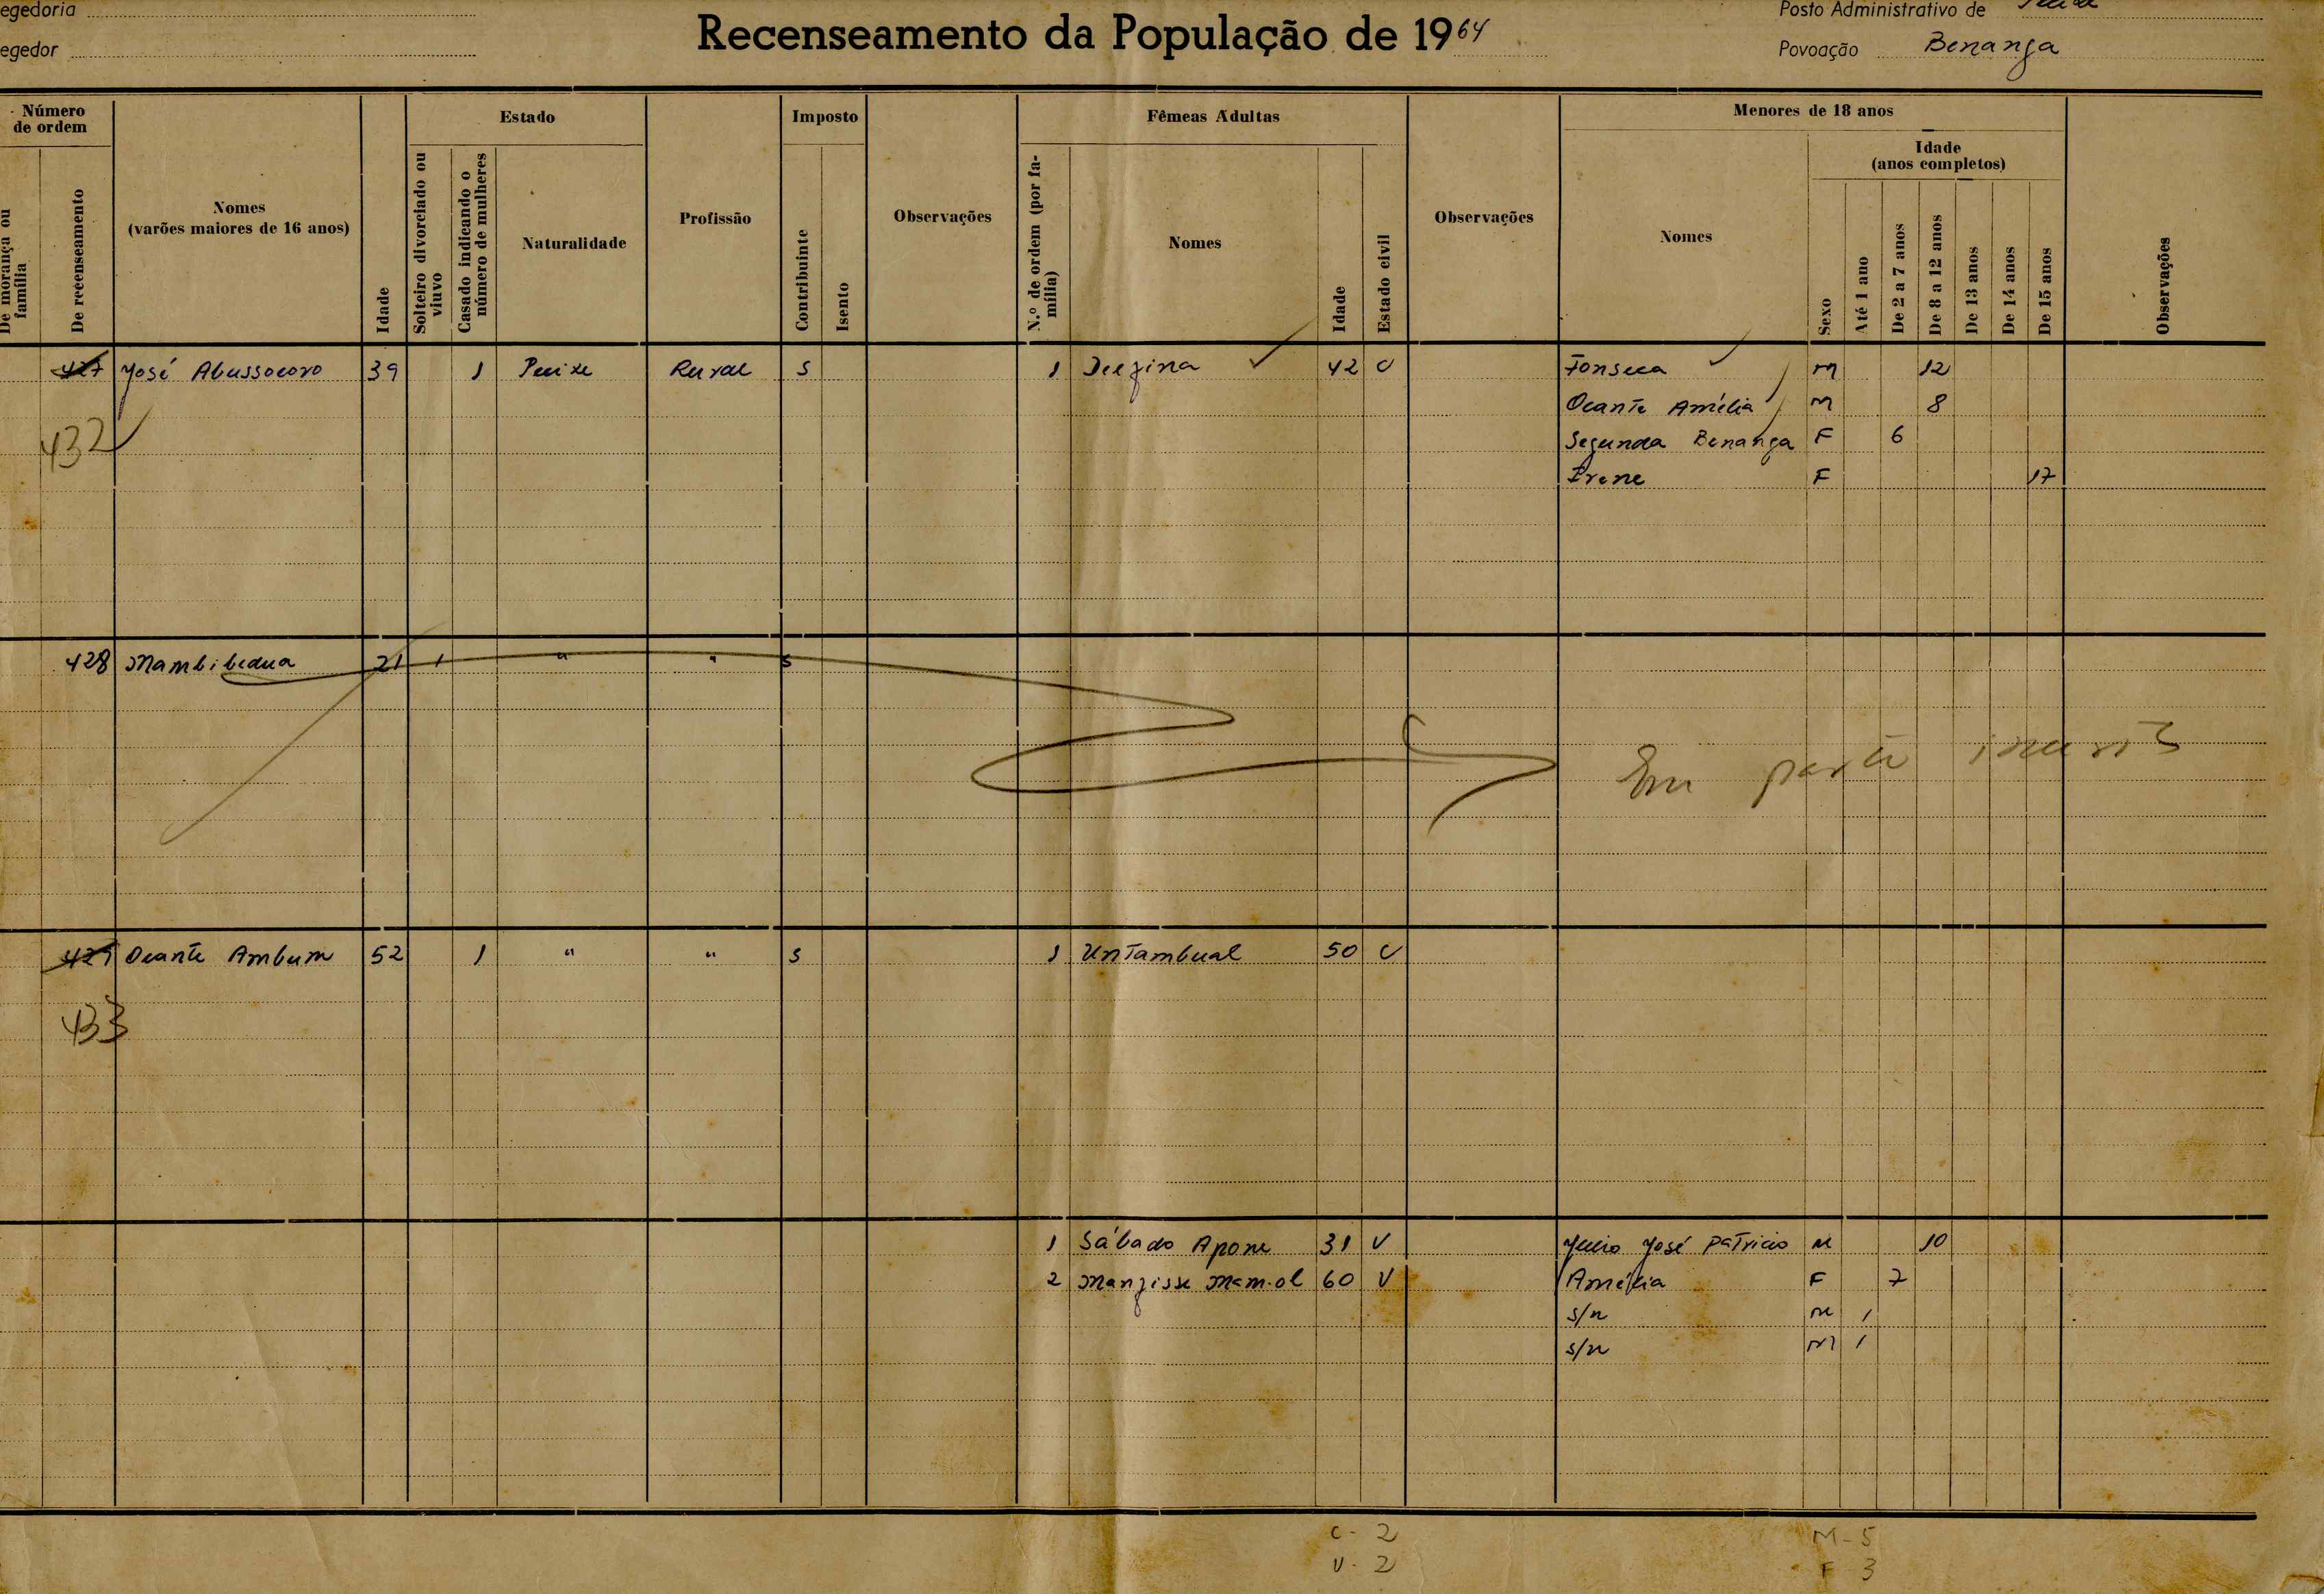 egedoria
egedor
Recenseamento da População de 1964
Posto Administrativo de
Povoação Benanga
Número de ordem
De morança ou família
De recenseamento
Nomes
(varões maiores de 16 anos)
Idade
Estado
Solteiro divorciado ou viuvo
Casado indicando o número de mulheres
Naturalidade
Profissão
Imposto
Contribuinte
Isento
Observações
Fêmeas Adultas
N.º de ordem (por família)
Nomes
Idade
Estado civil
Observações
Menores de 18 anos
Nomes
Sexo
Idade
(anos completos)
Até 1 ano
De 2 a 7 anos
De 8 a 12 anos
De 13 anos
De 14 anos
De 15 anos
Observações
427 José Abussocoro 39 1 Pecixe Rural S 1 42 C Fonseca M 12
Ocante Amélia M 8
432 Segunda Benanga F 6
Irene F 17
428 Mambibedua 21 1 " " S
Em parte
429 Ocante Ambum 52 1 " " S 1 Untambual 50 C
433
1 Sábado Apone 31 V Julio José Patricio M 10
2 60 V Amélia F 7
s/n M 1
s/n M 1
C - 2 M - 5
V - 2 F 3